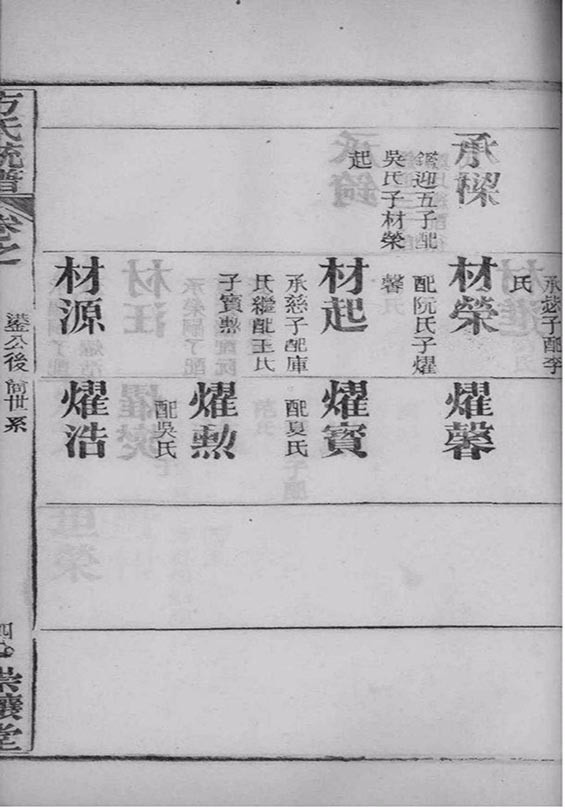 承樑
鑑迎五子配
吳氏子材榮
起
承苾子配李
氏
材榮
配阮氏子燿
馨
材起
承慈子配庫
氏繼配王氏
子寶勲
材源
燿馨
燿寶
配夏氏
燿勲
配吳氏
燿浩
方氏統譜
卷之
鋆公後
世系
四
崇讓堂